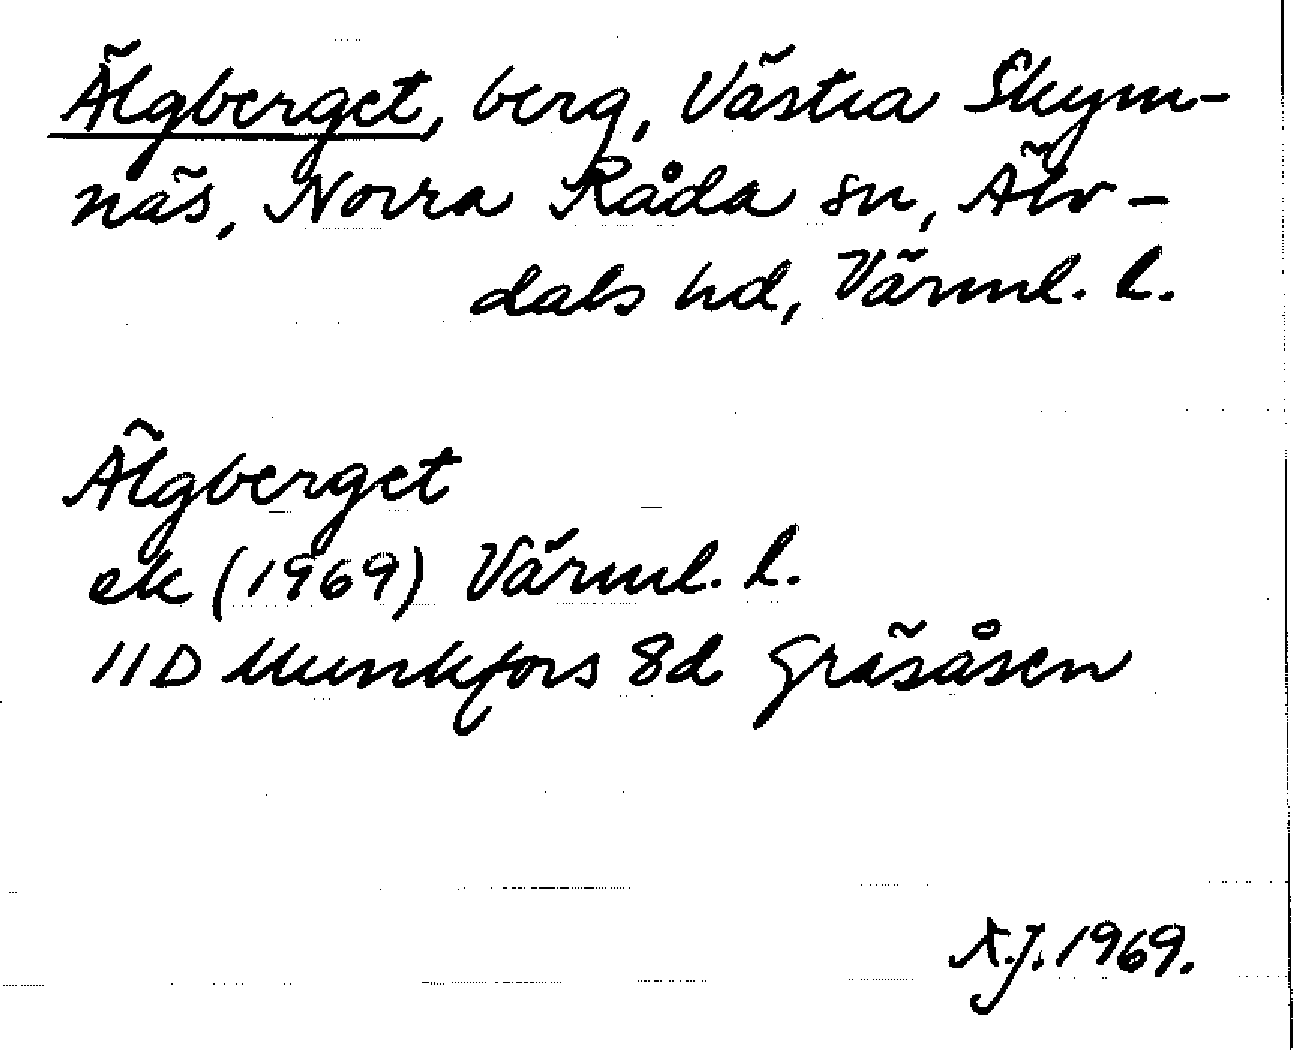 Älgberget, berg, Västra Skym-
näs, Norra Råda sn, Älv-
dals hd, Värml. l.
Älgberget
ek (1969) Värml. l.
11D Munkfors 8d Gräsåsen
A.J. 1969.